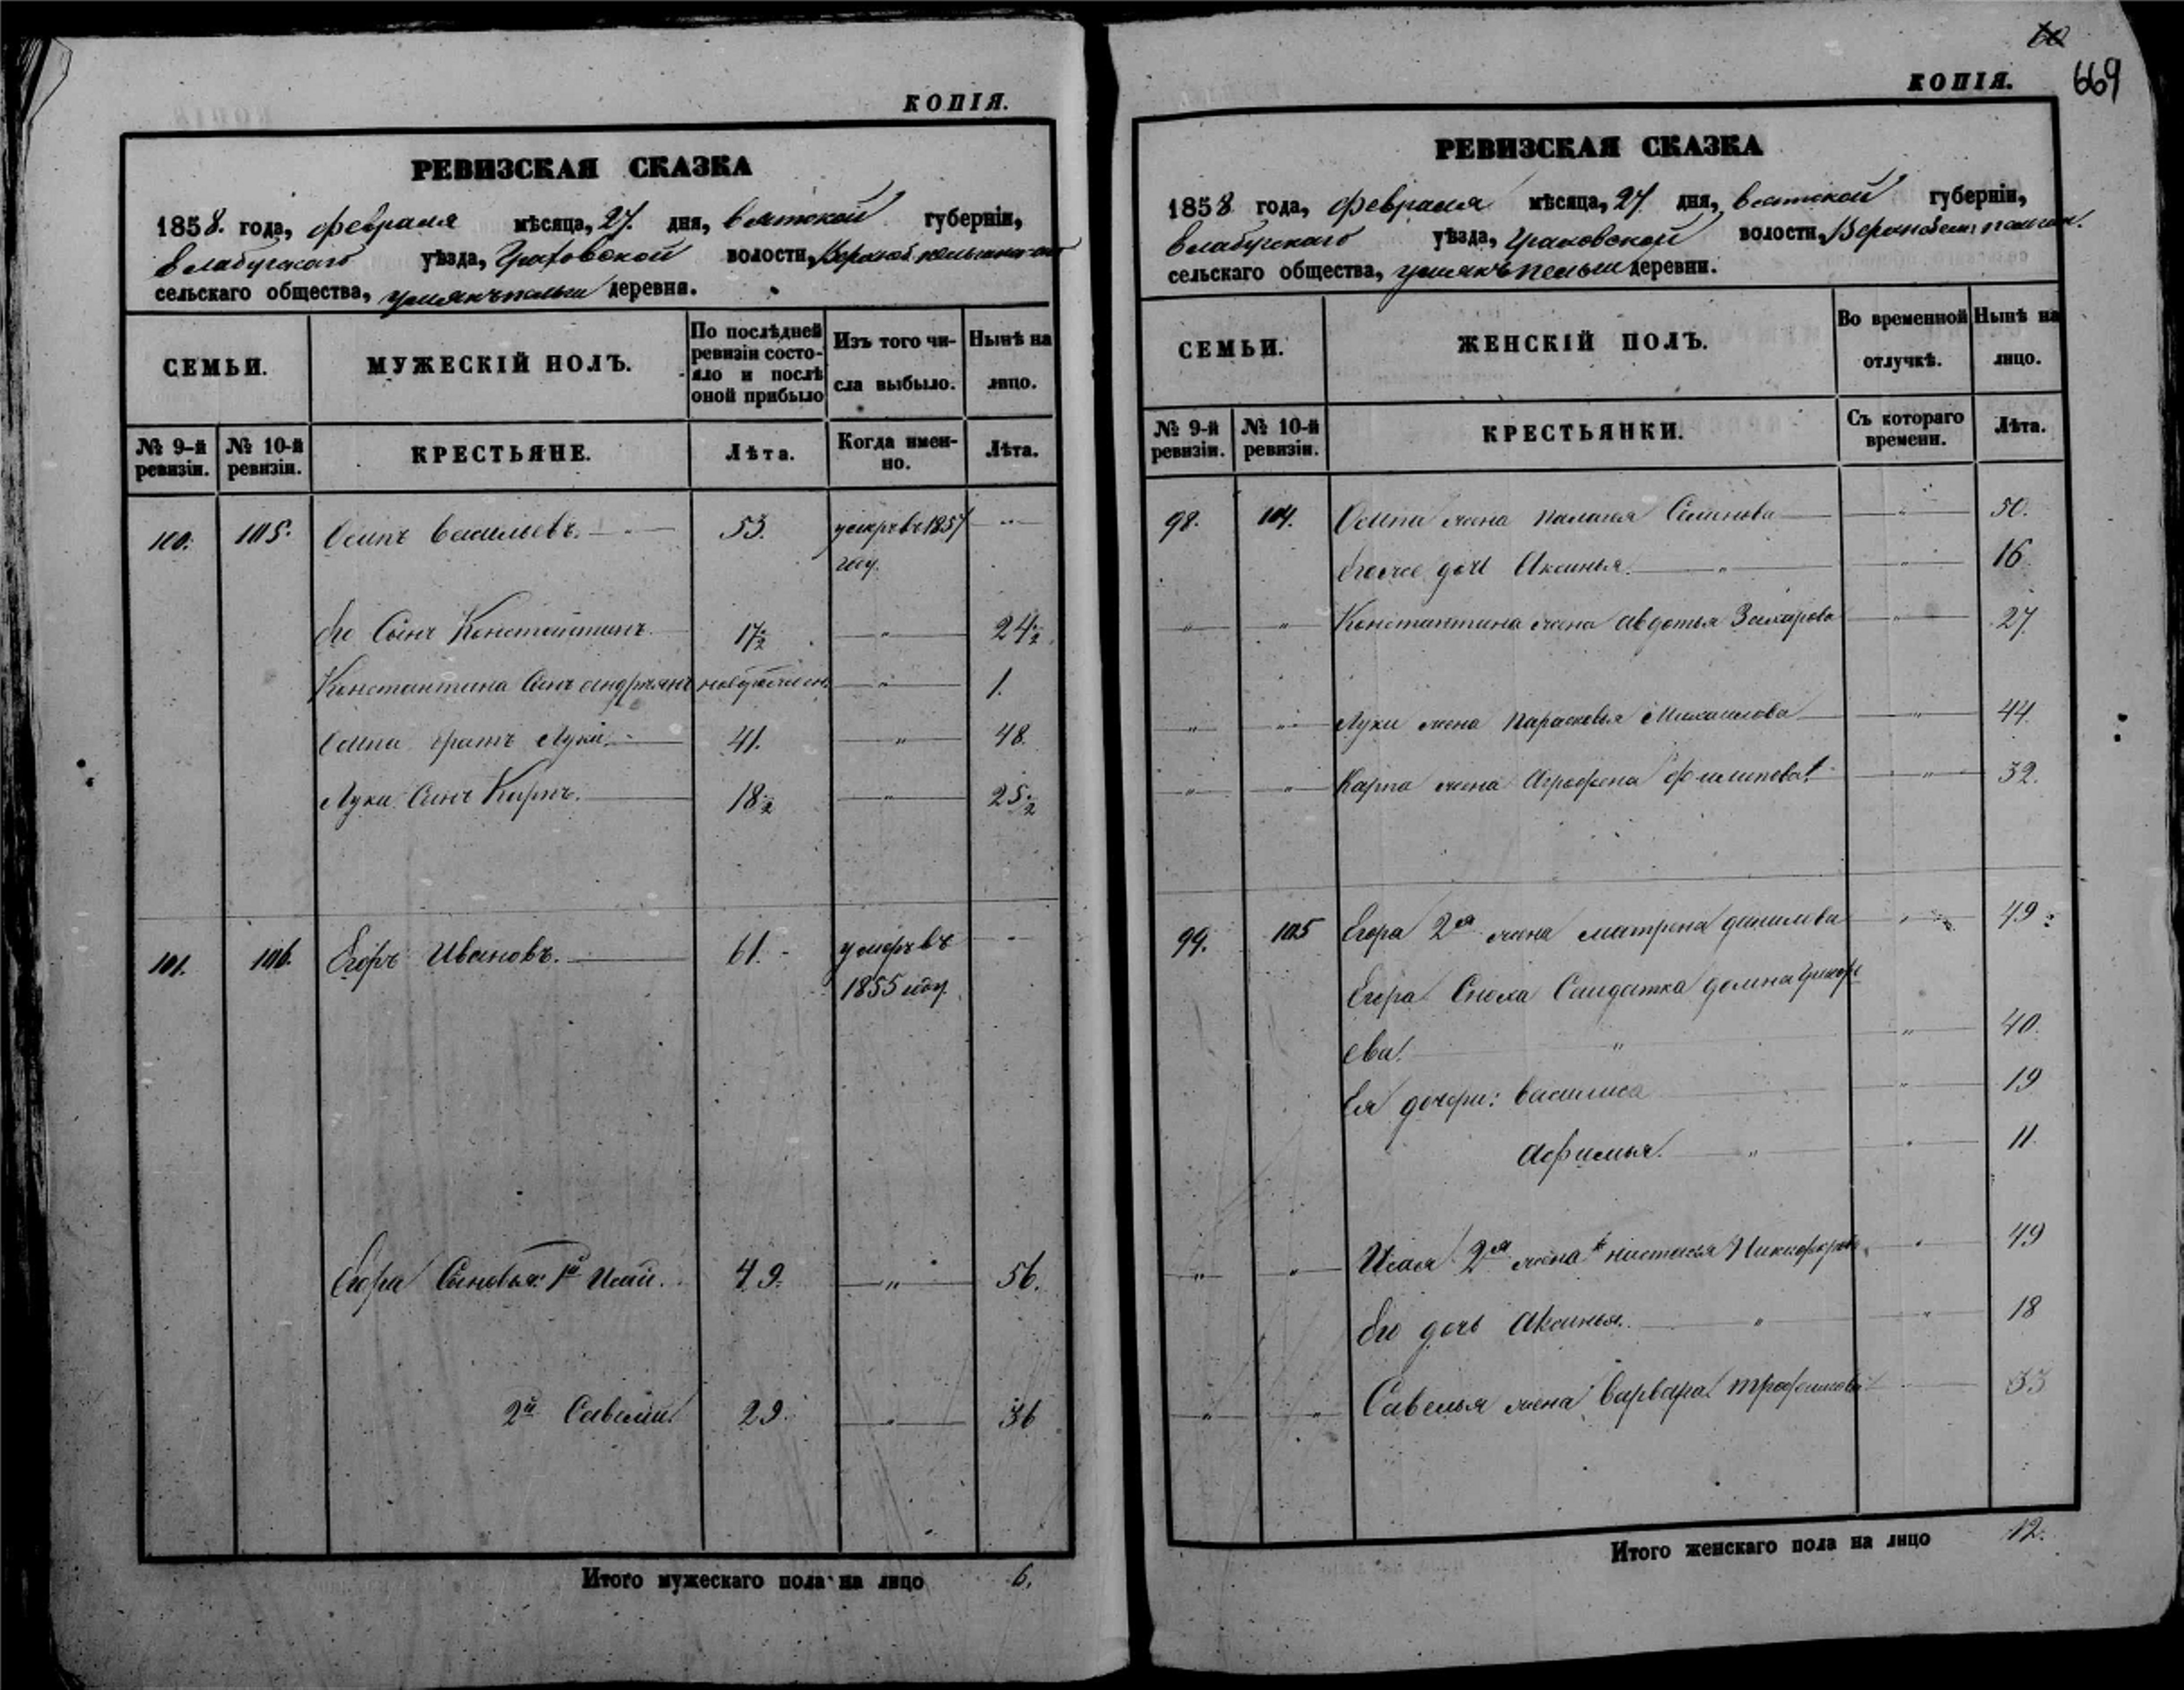 КОПІЯ.
РЕВИЗСКАЯ СКАЗКА
1858. года, февраля мѣсяца, 27. дня, вятской губерніи,
елабугскаго уѣзда, Граховской волости,
сельскаго общества, деревни.
СЕМЬИ. МУЖЕСКІЙ ПОЛЪ. По послѣдней ревизіи состояло и послѣ оной прибыло Изъ того числа выбыло. Нынѣ на лицо.
№ 9-й ревизіи. № 10-й ревизіи. КРЕСТЬЯНЕ. Лѣта. Когда именно. Лѣта.
100. 105. Осипъ Васильевъ. 53. умеръ въ 1857 "
году.
его Сынъ Константинъ. 17 1/2 " 24 1/2
Константина Сынъ андреянъ " 1.
Осипа братъ Лука. 41. " 48.
Луки Сынъ Карпъ. 18 1/2 " 25 1/2
101. 106. Егоръ Ивановъ. 61. умеръ въ "
1855 году.
Егора Сыновья: 1й Исай. 49. " 56.
2й Савелий 29. " 36
Итого мужескаго пола на лицо 6.
60
669
КОПІЯ.
РЕВИЗСКАЯ СКАЗКА
1858 года, февраля мѣсяца, 27. дня, вятской губерніи,
елабугскаго уѣзда, Граховской волости,
сельскаго общества, деревни.
СЕМЬИ. ЖЕНСКІЙ ПОЛЪ. Во временной отлучкѣ. Нынѣ на лицо.
№ 9-й ревизіи. № 10-й ревизіи. КРЕСТЬЯНКИ. Съ котораго времени. Лѣта.
98. 104. Осипа жена Палагея Семенова " 50.
Его же дочь Аксинья. " " 16
" " Константина жена авдотья Захарова " 27.
" " Луки жена Парасковья Михаилова " 44.
" " Карпа жена Аграфена филипова " 32.
99. 105 Егора 2я жена матрена данилова " 49
Егора Сноха Салдатка домна Григорь
ева. " " 40.
Ея дочери: василиса " 19
Афимья. " " 11.
" " Исая 2я жена настасья Никифорова " 49
Его дочь Аксинья. " " 18
" " Савелья жена Варвара трофимова 33
Итого женскаго пола на лицо 12.